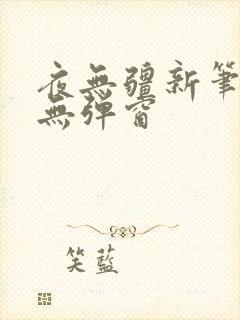 夜無疆新筆
無彈窗
笑藍